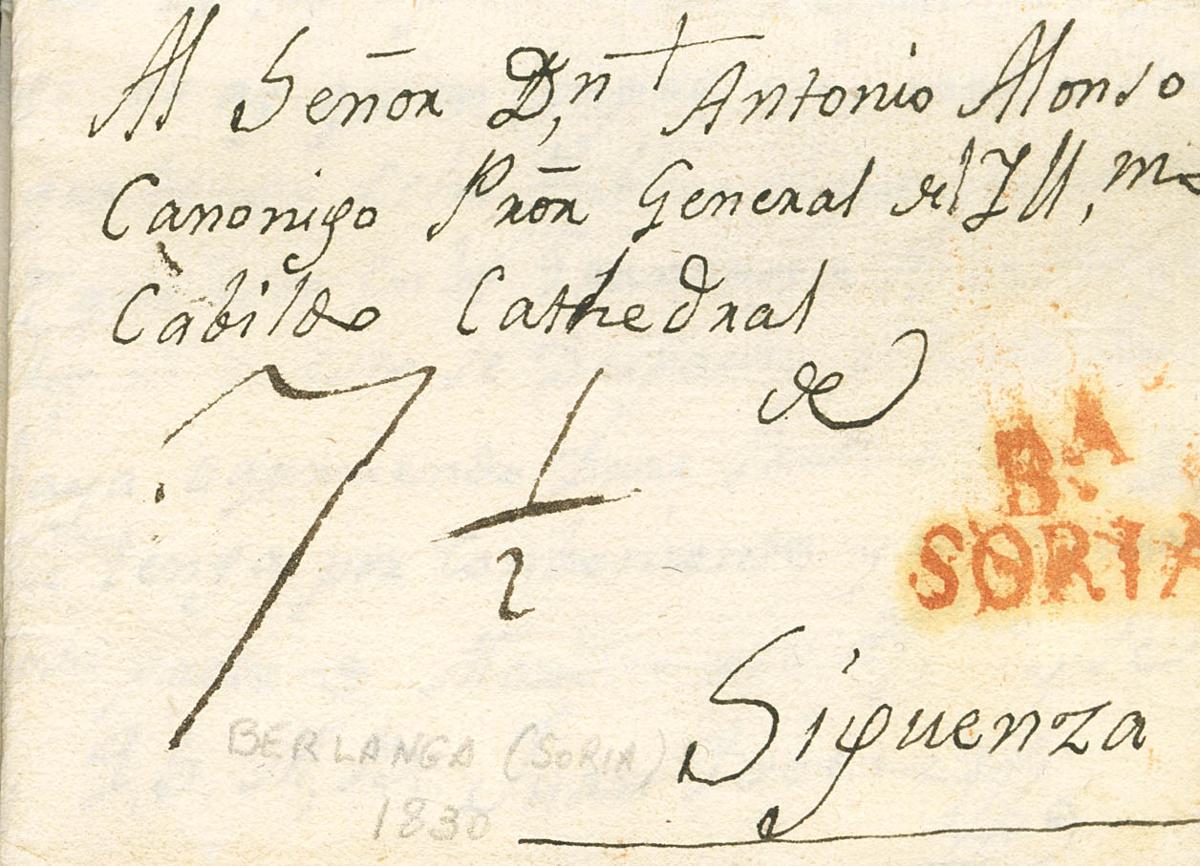 Al Señor Dn Antonio Alonso
Canonigo Prōr General del Ill,mo
Cabildo Cathedral
de
7 1/2
Bª A
SORIA
Siguenza
BERLANGA (SORIA)
1830